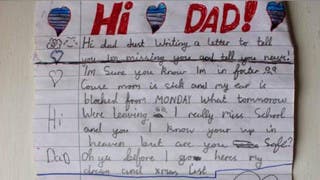 Hi DAD!
Hi dad Just Writing a letter to tell
you Im missing you and tell you news!
Im Sure you know Im in foster
Couse mom is sick and my ear is
blocked from MONDAY What tommorow
Were leaving I really miss School
and you I know your up in
heaven but are you Safe?
Oh ye before I go heres my
dream and xmas list
Hi
Dad